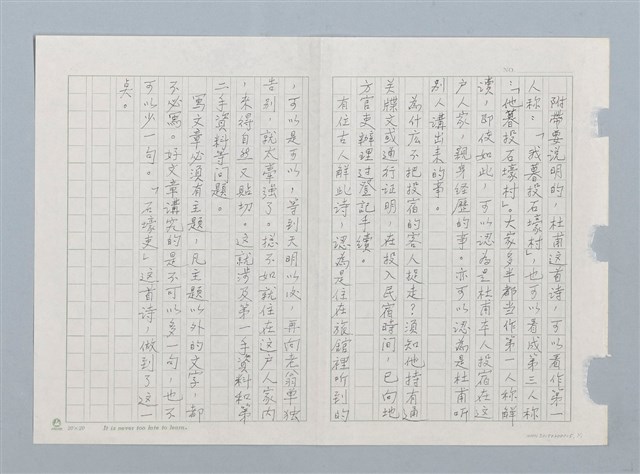 50
附带要说明的，杜甫这首诗，可以看作第一
人称：「我暮投石壕村」，也可以看成第三人称
：「他暮投石壕村」。大家多半都当作第一人称解
读，即使如此，可以认為是杜甫本人投宿在这
户人家，親身经歷的事。亦可以認為是杜甫听
别人講出来的事。
為什広不把投宿的客人捉走？须知他持有通
关牒文或通行证明，在投入民宿時间，已向地
方官吏辦理过登記手續。
有位古人解此诗，認為是住在旅館裡听到的
，可以是可以，等到天明以后，再向老翁单独
告别，就太牽強了。捴不如就住在这户人家内
，来得自然又贴切。这就涉及第一手資料和第
二手資料等问題。
寫文章必須有主题，凡主题以外的文字，都
不必寫。好文章講究的是不可以多一句，也不
可以少一句。「石壕吏」这首诗，做到了这一
点。